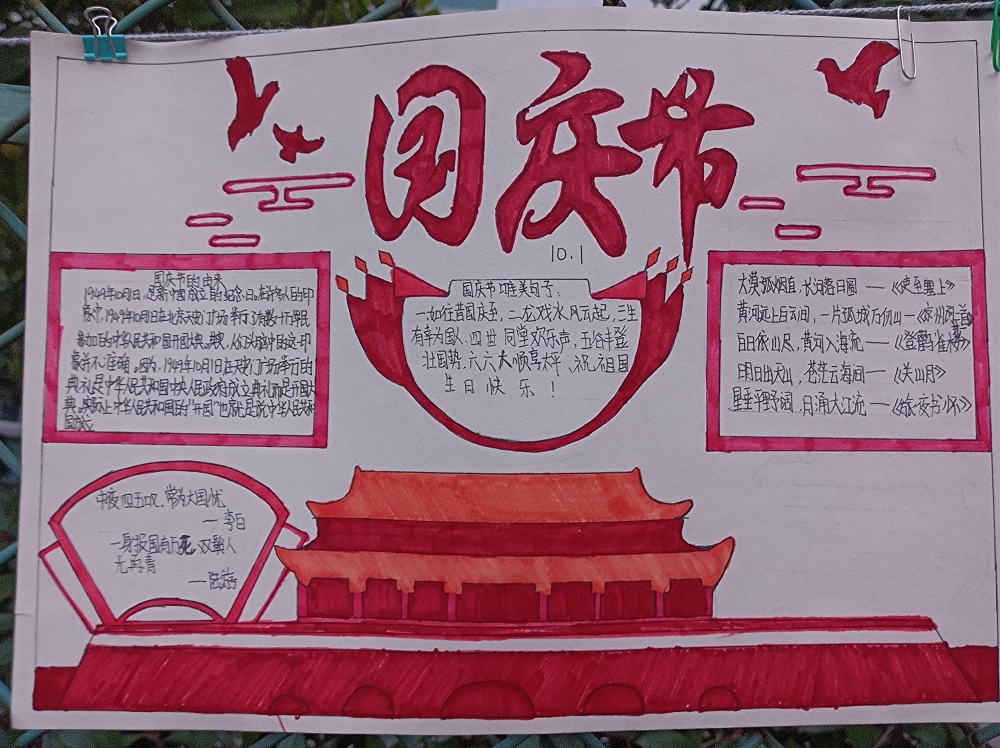 国庆节
10.1
国庆节的由来
1949年10月1日,是新中国成立的纪念日。在许多人的印
象中,1949年10月1日在北京天安门广场举行了有数十万军民
参加的中华人民共和国开国大典。其实,人们头脑中的这一印
象并不准确。因为,1949年10月1日在天安门广场举行的
典礼是中华人民共和国中央人民政府成立典礼而不是开国大
典。实际上,中华人民共和国的“开国”也就是说中华人民共和
国成立
国庆节唯美句子:
一如往昔国庆至,二龙戏水风云起,三生
有幸为国人,四世同堂欢乐声,五谷丰登
壮国势,六六大顺享太平,祝祖国
生日快乐!
大漠孤烟直,长河落日圆——《使至塞上》
黄河远上白云间,一片孤城万仞山——《凉州词》
白日依山尽,黄河入海流——《登鹳雀楼》
明月出天山,苍茫云海间——《关山月》
星垂平野阔,月涌大江流——《旅夜书怀》
中夜四五叹,常为大国忧
——李白
一身报国有万死,双鬓人
无再青
——陆游